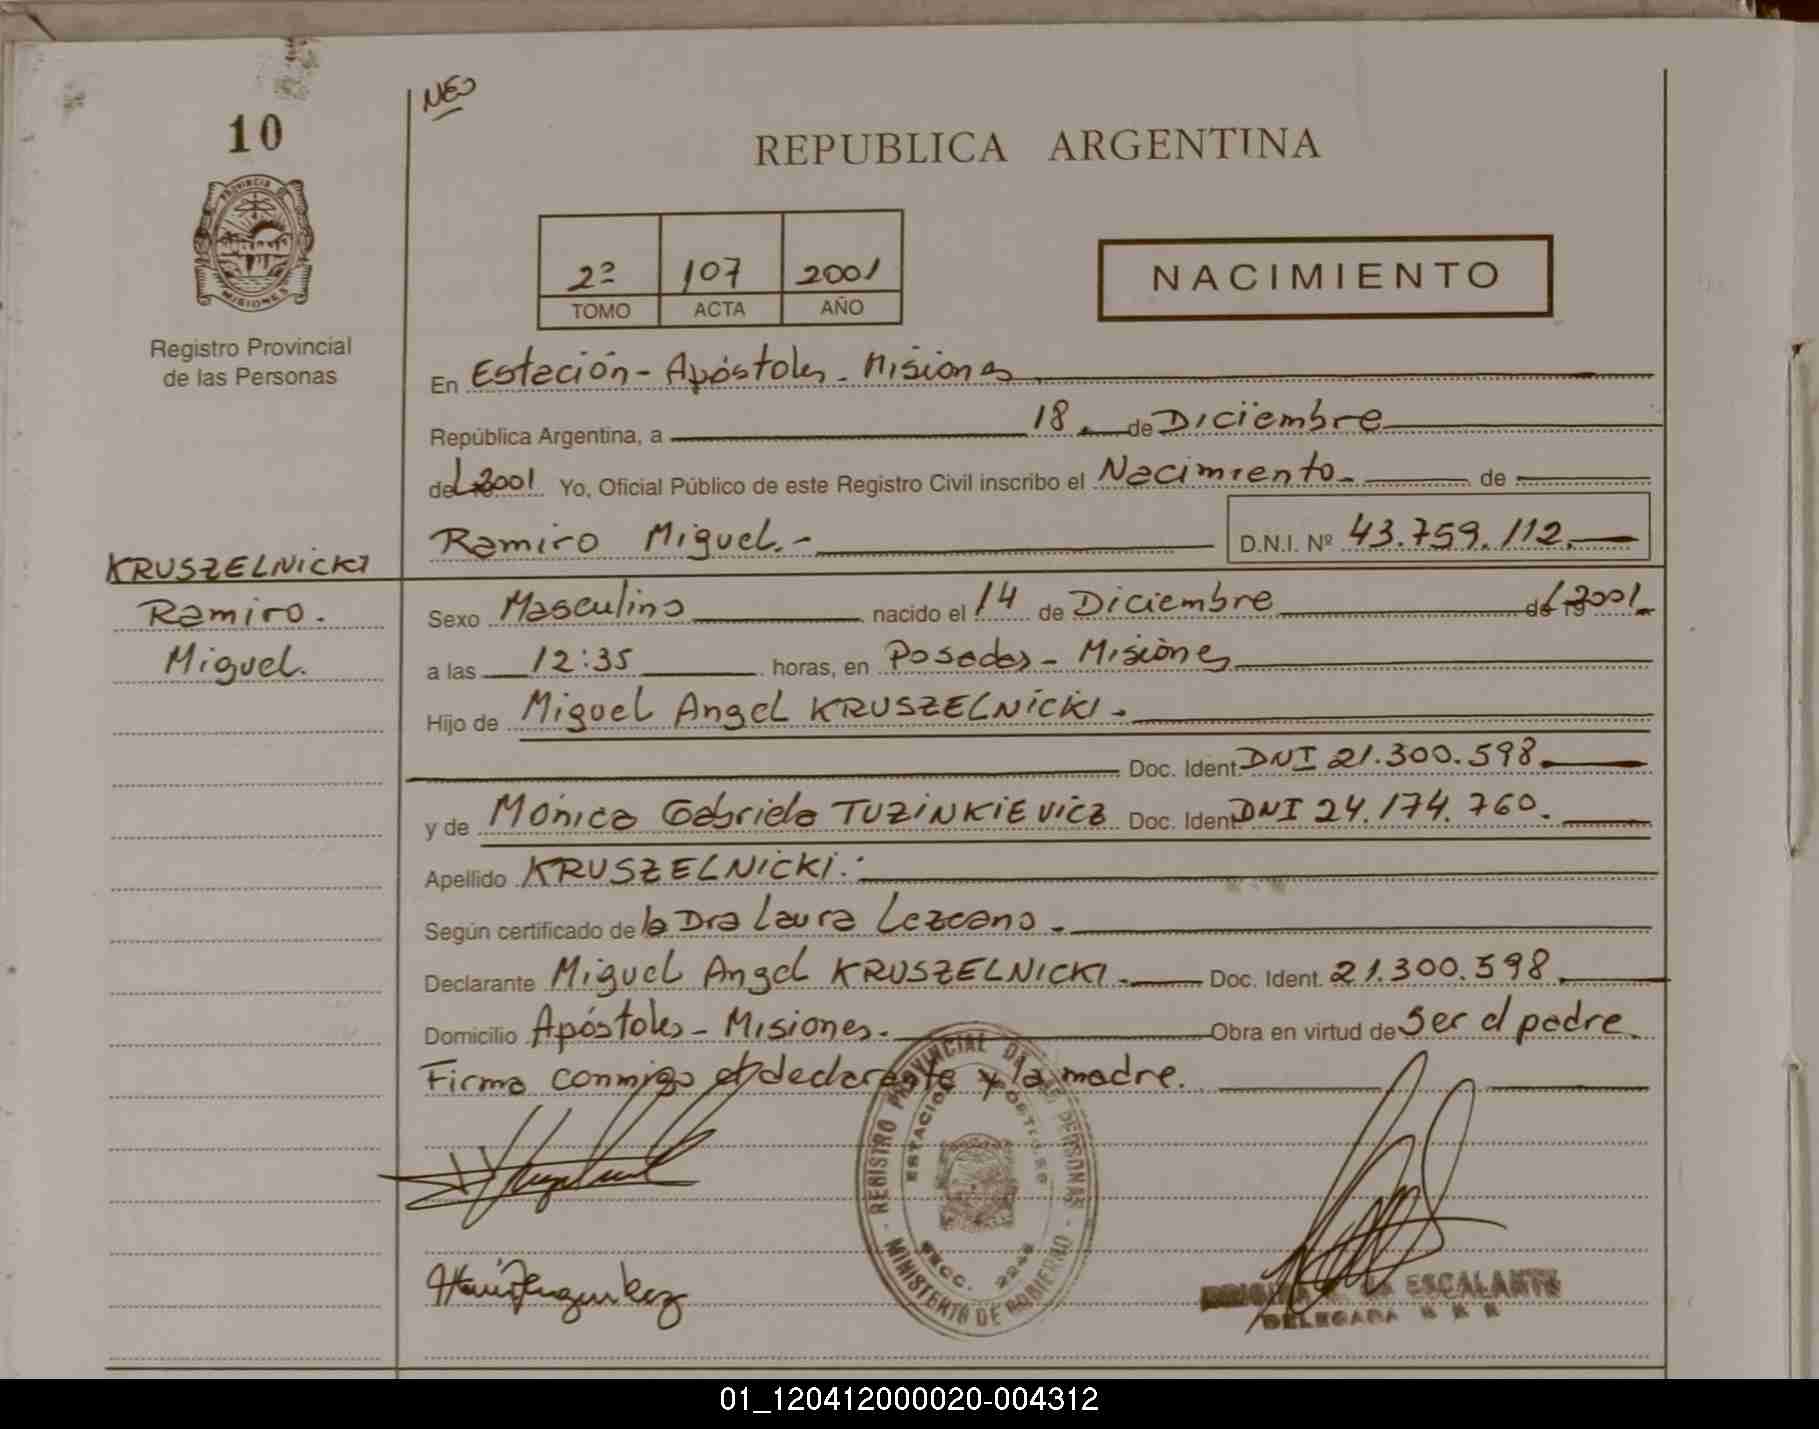 NEO
10
REPUBLICA ARGENTINA
PROVINCIA DE
MISIONES
2º 107 2001
TOMO ACTA AÑO
NACIMIENTO
Registro Provincial
de las Personas
En Estación - Apóstoles - Misiones
República Argentina, a 18 de Diciembre
del 2001 Yo, Oficial Público de este Registro Civil inscribo el Nacimiento.- de
Ramiro Miguel.- D.N.I. Nº 43.759.112.
KRUSZELNICKI
Ramiro.
Miguel.
Sexo Masculino nacido el 14 de Diciembre del 2001.
a las 12:35 horas, en Posadas - Misiones
Hijo de Miguel Angel KRUSZELNICKI.
Doc. Ident. DNI 21.300.598.
y de Mónica Gabriela TUZINKIEVICZ Doc. Ident. DNI 24.174.760.
Apellido KRUSZELNICKI.
Según certificado de la Dra Laura Lezcano.
Declarante Miguel Angel KRUSZELNICKI. Doc. Ident. 21.300.598.
Domicilio Apóstoles - Misiones. Obra en virtud de Ser el padre.
Firma conmigo el declarante y la madre.
REGISTRO PROVINCIAL DE LAS PERSONAS
MINISTERIO DE GOBIERNO
ESTACION APOSTOLES
SECC. 2248
ESCALANTE
DELEGADA
01_120412000020-004312